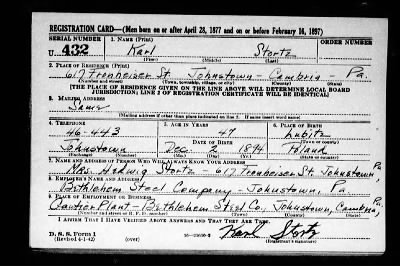 REGISTRATION CARD—(Men born on or after April 28, 1877 and on or before February 16, 1897)
SERIAL NUMBER 1. NAME (Print)
U 432 Karl Stortz
(First) (Middle) (Last)
2. PLACE OF RESIDENCE (Print)
617 Trenheiser St. Johnstown - Cambria - Pa.
(Number and street) (Town, township, village, or city) (County) (State)
[THE PLACE OF RESIDENCE GIVEN ON THE LINE ABOVE WILL DETERMINE LOCAL BOARD
JURISDICTION; LINE 2 OF REGISTRATION CERTIFICATE WILL BE IDENTICAL]
3. MAILING ADDRESS
Same
[Mailing address if other than place indicated on line 2. If same insert word same]
4. TELEPHONE 5. AGE IN YEARS 6. PLACE OF BIRTH
46-443 47 Lubitz
DATE OF BIRTH (Town or county)
Johnstown Dec. 2 1894 Poland
(Exchange) (Number) (Mo.) (Day) (Yr.) (State or country)
7. NAME AND ADDRESS OF PERSON WHO WILL ALWAYS KNOW YOUR ADDRESS
Mrs. Hedwig Stortz - 617 Trenheiser St. Johnstown Pa
8. EMPLOYER'S NAME AND ADDRESS
Bethlehem Steel Company - Johnstown, Pa
9. PLACE OF EMPLOYMENT OR BUSINESS
Gautier Plant - Bethlehem Steel Co., Johnstown, Cambria, Pa,
(Number and street or R. F. D. number) (Town) (County) (State)
I AFFIRM THAT I HAVE VERIFIED ABOVE ANSWERS AND THAT THEY ARE TRUE.
D. S. S. Form 1
(Revised 4-1-42) (over) Karl Stortz
(Registrant's signature)